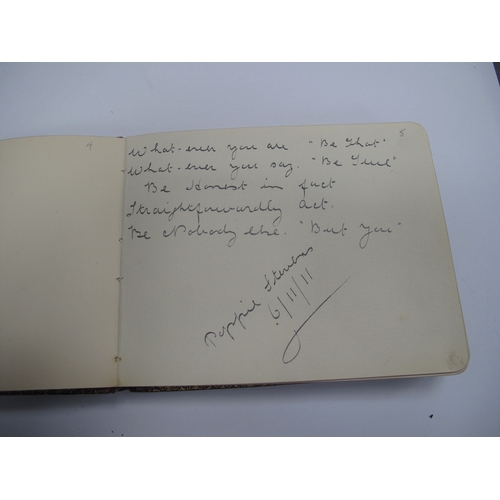 4
5
What-ever you are "Be That"
What-ever you say. "Be True"
Be Honest in fact
Straightforwardly act.
Be Nobody else. "But you"
Poppie Stevens
6/11/11